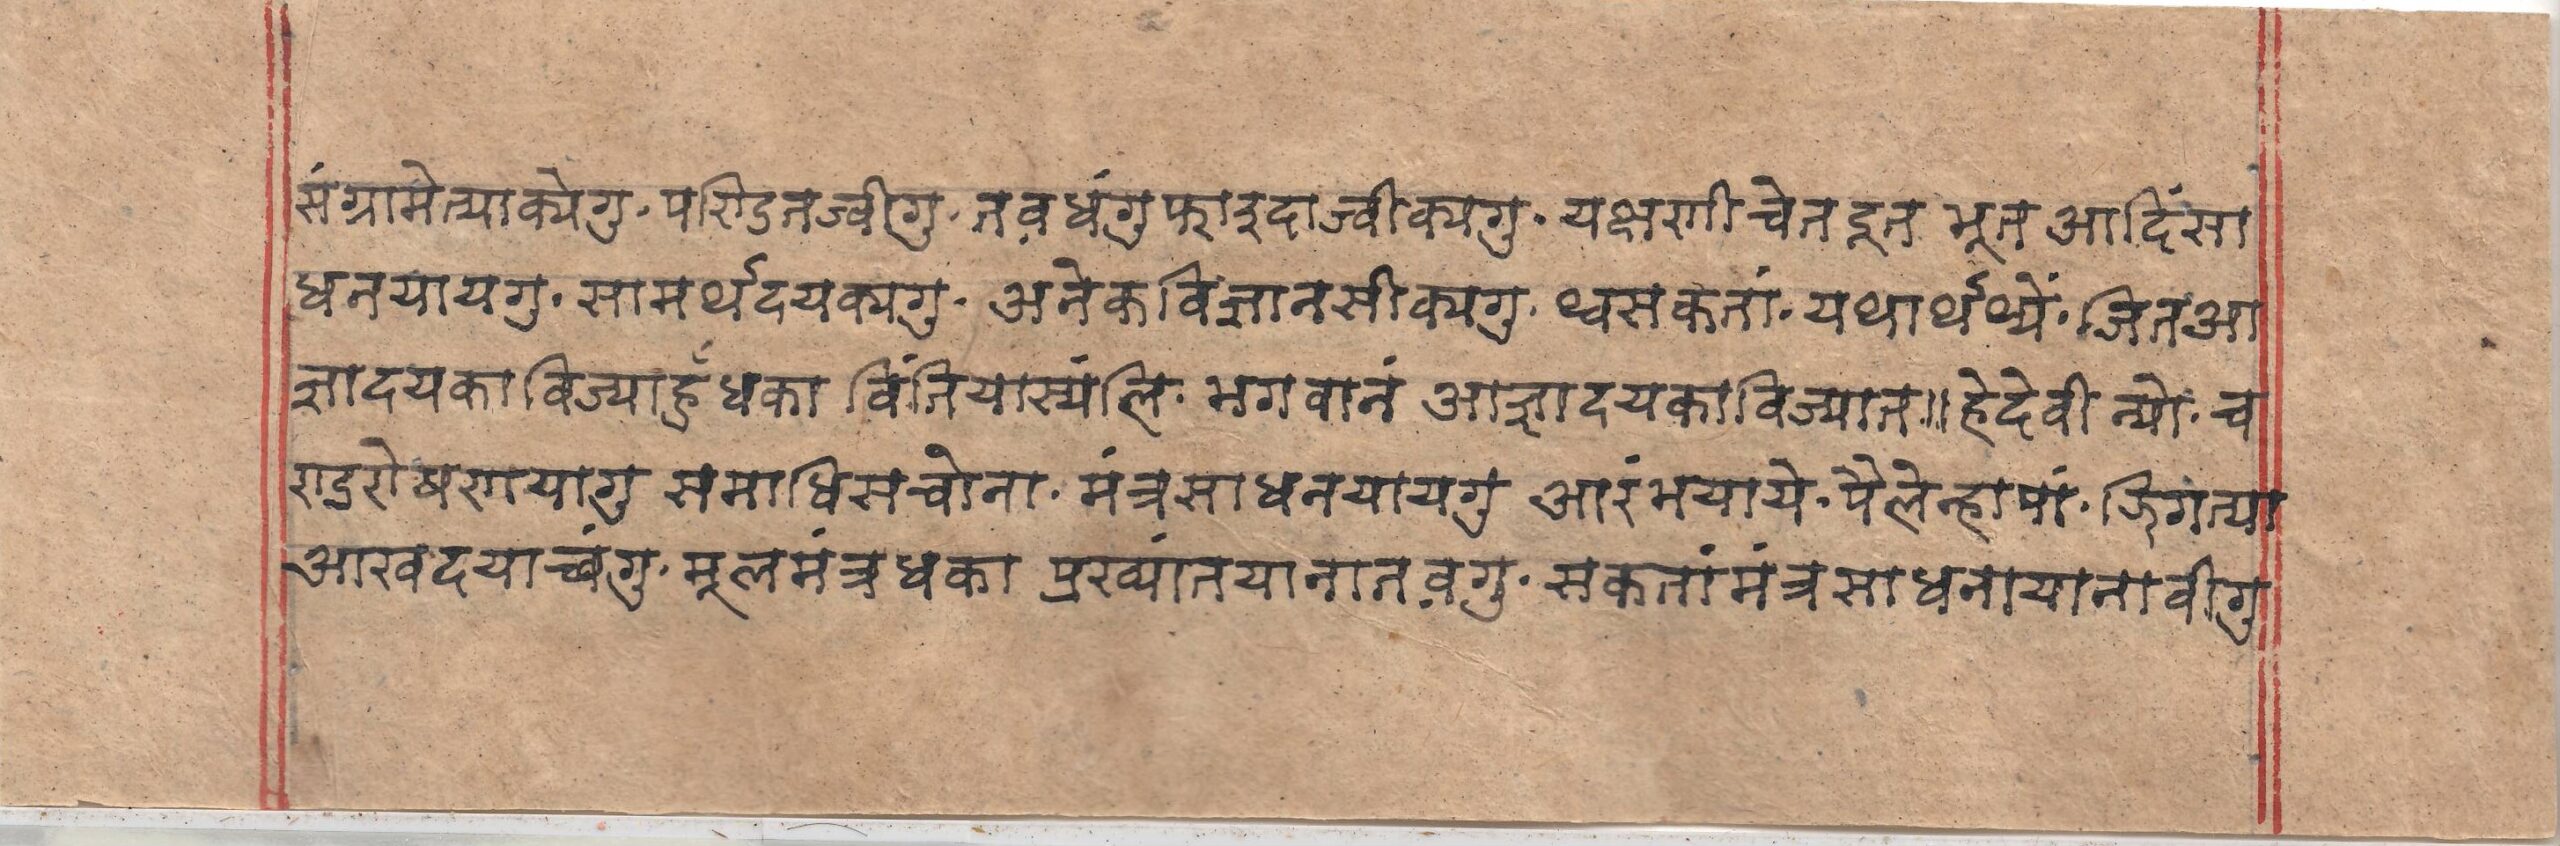 संग्रामेत्याक्येगु· पण्डितज्वीगु· तव़धंगु फाइदाज्वीक्यगु· यक्षणी चेत दूत भूत आदिंसा
धनयायगु· सामर्थदयक्यगु· अनेकविज्ञानसीक्यगु· थ्वसकतां· यथार्थथ्यें· जितआ
ज्ञादयकाविज्याहुँधका विंतियास्यंलि· भगवानं आज्ञादयकाविज्यात॥हेदेवी न्यो· च
ण्डरोषणयागु समाधिसचोना· मंत्रसाधनयायगु आरंभयाये· पैलेन्हापां· जिगत्या
आखदयाच्वंगु· मूलमंत्रधका प्रख्यांतयानातव़गु· सकतांमंत्रसाधनायानावीगु